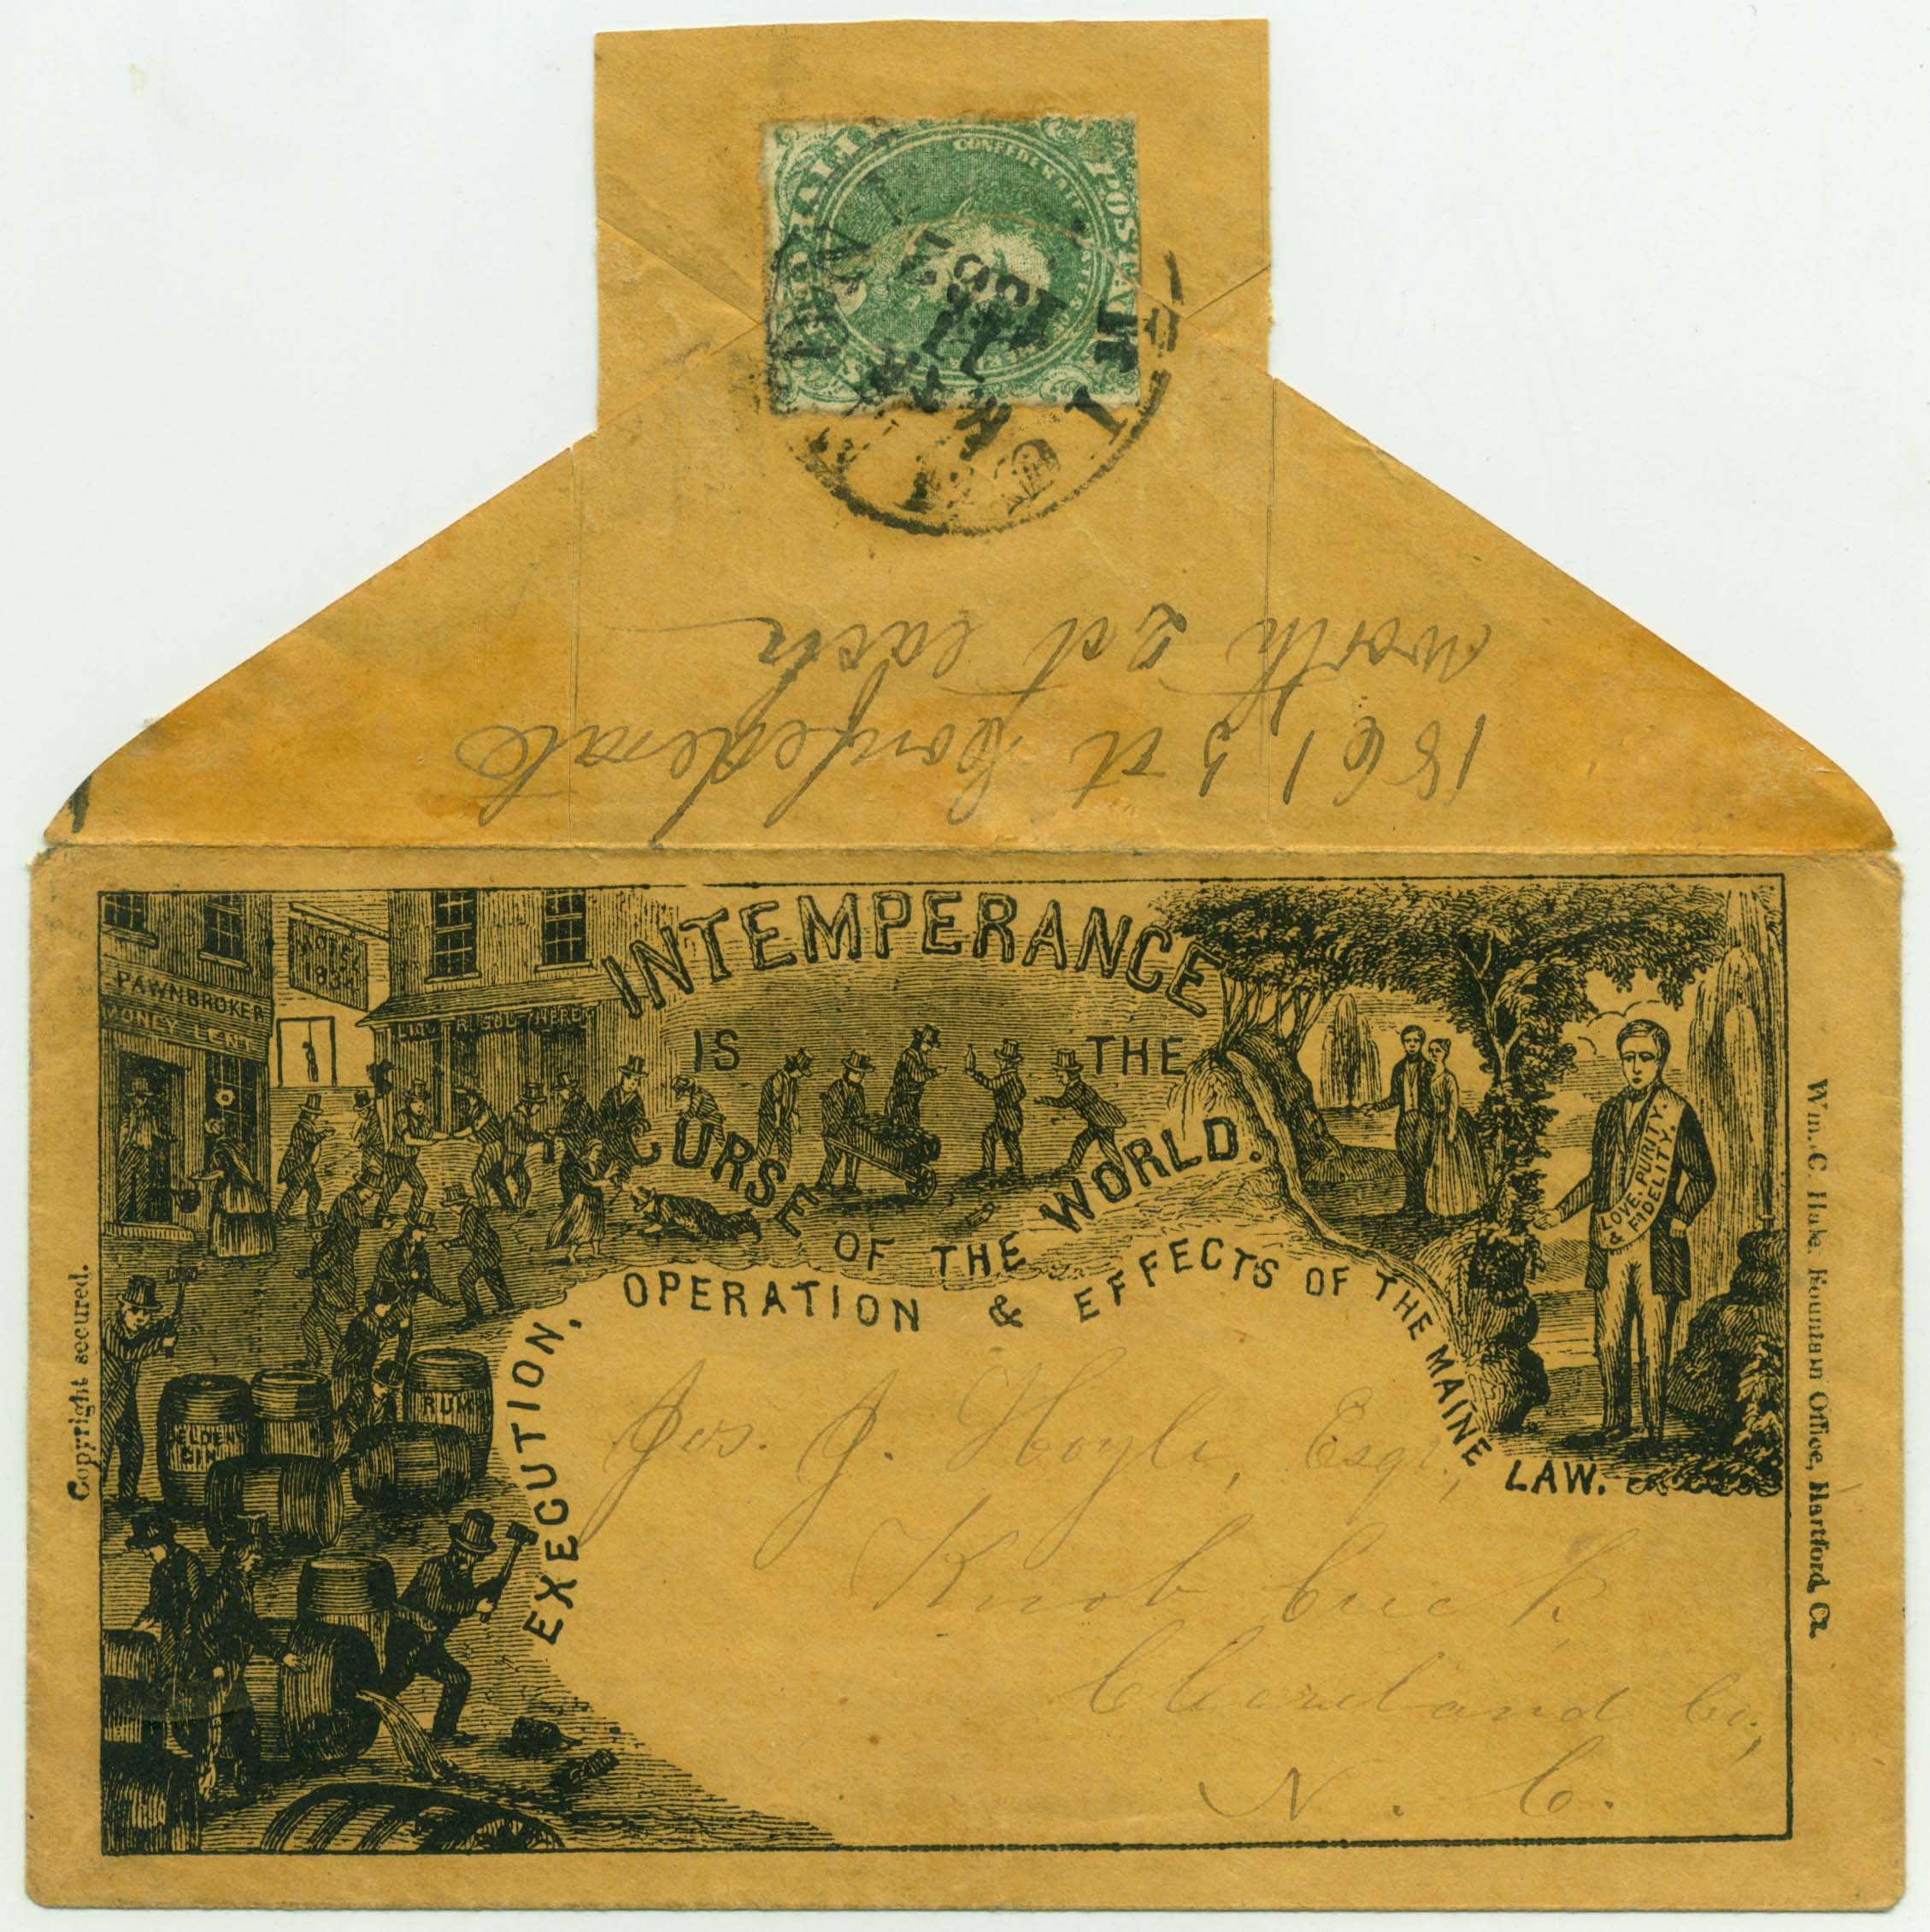 CONFEDERATE
POSTAGE
1861 5 ct Confederate
worth 2 ct each
INTEMPERANCE
IS THE
CURSE OF THE WORLD.
EXECUTION, OPERATION & EFFECTS OF THE MAINE LAW.
PAWNBROKER
MONEY LENT
HOTEL
1834
RUM
GIN
LOVE, PURITY,
& FIDELITY.
Copyright secured.
Wm. C. Hake, Fountain Office, Hartford, Ct.
Jos. J. Hoyle, Esqr.,
Knob Creek,
Cleaveland Co.,
N. C.